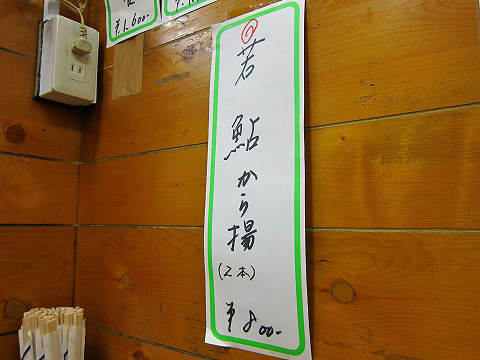 若鮎から揚
(2本)
¥800-
¥1,600-